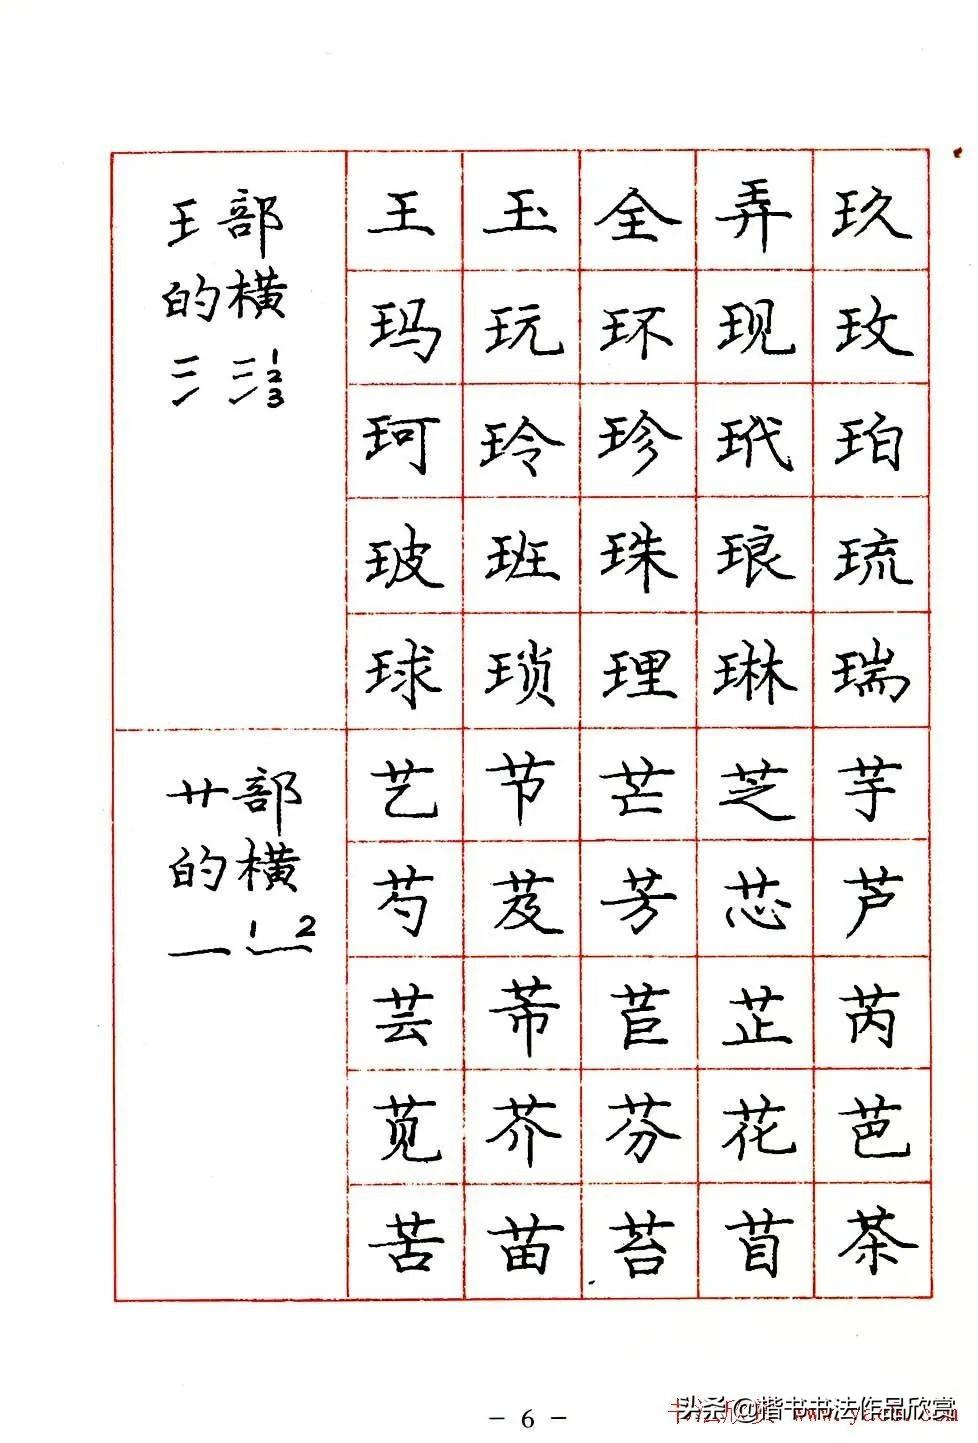 王部
的横
1
2
3
王 玉 全 弄 玖
玛 玩 环 现 玫
珂 玲 珍 玳 珀
玻 班 珠 琅 琉
球 琐 理 琳 瑞
艹部
的横
1 2
艺 节 芒 芝 芋
芍 芨 芳 芯 芦
芸 芾 苣 芷 芮
苋 芥 芬 花 芭
苦 苗 苔 苜 茶
- 6 -
头条@楷书书法作品欣赏